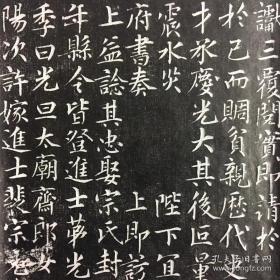 二覆閱實即請於
於己而賙貧親歷代
才承慶光大其後回
震水災 陛下宜
府書奏 上即詔
上益諗其忠娶宗氏封
年縣令皆登進士第光
季曰光旦太廟齋郎女
陽次許嫁進士裴宗
孔夫子旧书网